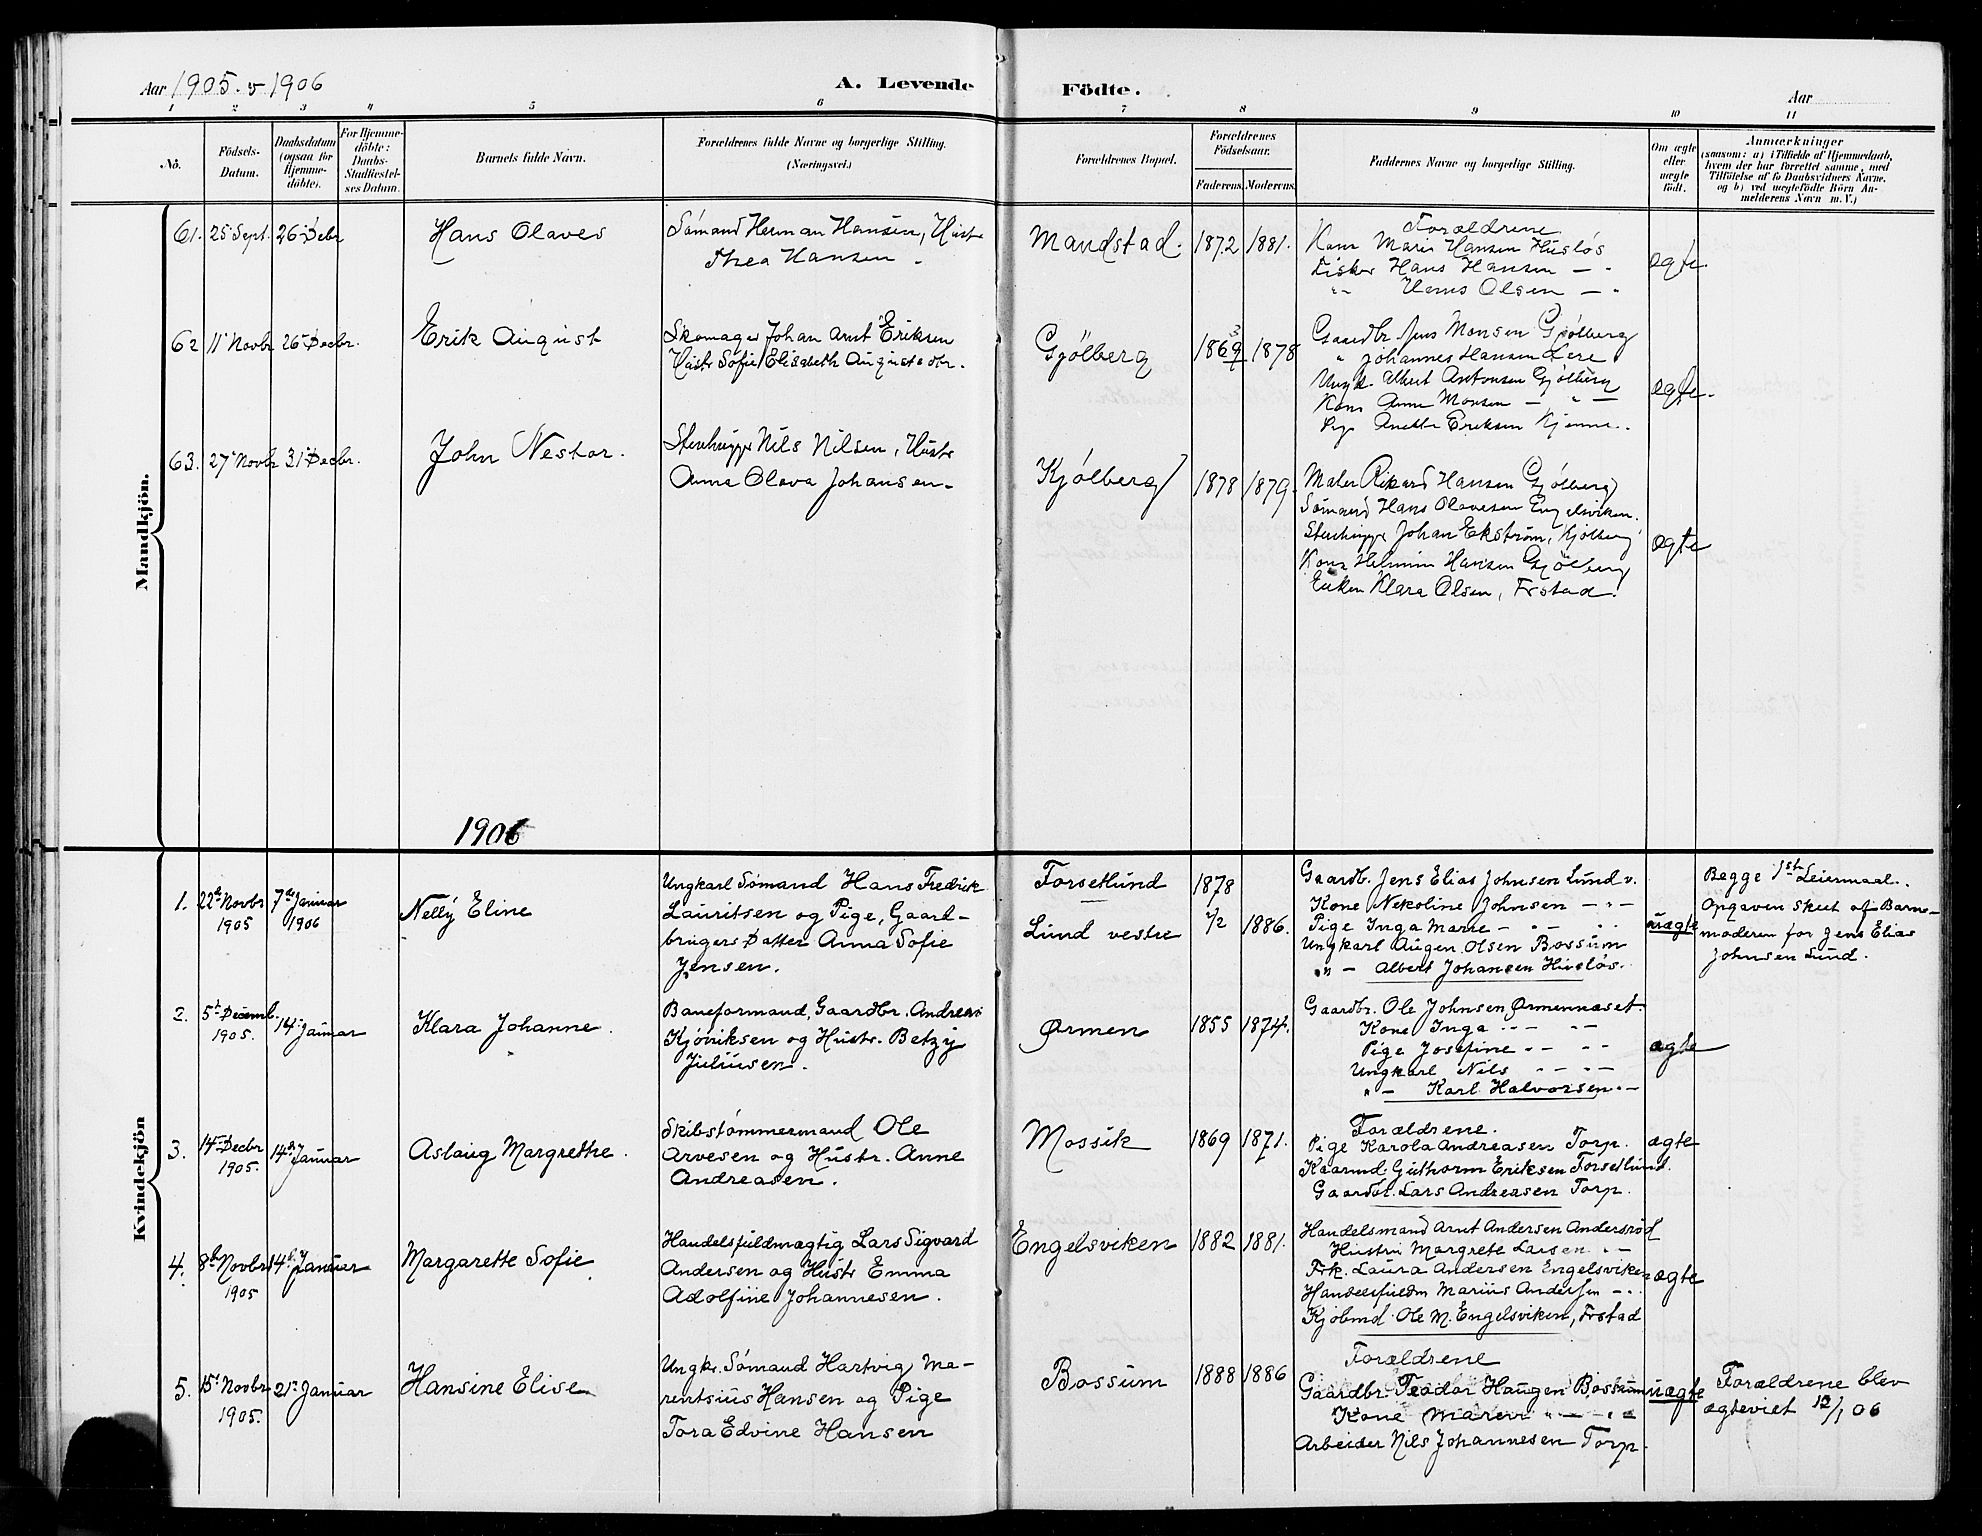 Aar 1905. & 1906
A. Levende Födte.
Aar
1 2 3 4 5 6 7 8 9 10 11
Nô.
Födsels-
Datum.
Daabsdatum
(ogsaa for
Hjemme-
döbte).
For Hjemme-
döbte:
Daabs-
Stadfæstel-
ses Datum.
Barnets fulde Navn.
Forældrenes fulde Navne og borgerlige Stilling.
(Næringsvei.)
Forældrenes Bopæl.
Forældrenes
Födselsaar.
Faderens. Moderens.
Faddernes Navne og borgerlige Stilling.
Om ægte
eller
uægte
født.
Anmærkninger
(saasom: a) i Tilfælde af Hjemmedaab,
hvem der har forrettet samme, med
Tilföielse af to Daabsvidners Navne,
og b) ved uægtefödte Börn An-
melderens Navn m. V.)
Mandkjön.
61. 25 Sept. 26 Debr
Hans Olaves
Sømand Herman Hansen, Hustr
Thea Hansen.
Mandstad. 1872 1881.
Forældrene
Kone Marie Hansen Husløs
Fisker Hans Hansen — "
" Hans Olsen — "
ægte.
62 11 Novbr 26 Decbr.
Erik August
Skomager Johan Arnt Eriksen
Hustr Sofie Elisabeth Augustsdtr.
Gjølberg 1869 1878
Gaardbr Jens Monsen Gjølberg
" Johannes Hansen Lere
Ungk. Albert Antonsen Gjølberg
Kone Anne Monsen — " —
Pige Anette Eriksen Kjenne..
ægte.
63. 27 Novbr 31 Decbr.
John Nestor.
Stenhugger Nils Nilsen, Hustr
Anna Olava Johansen.
Kjølberg 1878 1879.
Maler Rikard Hansen Gjølberg
Sømand Hans Olavesen Engelsviken.
Stenhugger Johan Ekstrøm, Kjølberg
Kone Helmine Hansen Gjølberg
Enken Klara Olsen, Frstad.
ægte
1906
Kvindekjön
1. 22de Novbr 1905 7de Januar 1906
Nelly Eline
Ungkarl Sømand Hans Fredrik
Lauritsen og Pige, Gaard-
brugers Datter Anna Sofie
Jensen.
Forsetlund
Lund vestre
1878 1/2 1886.
Gaardb. Jens Elias Johnsen Lund v.
Kone Nekoline Johnsen — " —
Pige Inga Marie — " —
Ungkarl Augen Olsen Bossum
" — Albert Johansen Husløs.
uægte
Begge 1st Leiermaal.
Opgaven skeet af Barne-
moderen for Jens Elias
Johnsen Lund.
2. 5te Decemb. 1905. 14. Januar
Klara Johanne.
Baneformand, Gaardbr. Andreas
Kjøniksen og Hustr. Betzy
Juliusen.
Ørmen 1855 1874.
Gaardbr. Ole Johnsen Ørmennæset.
Kone Inga " — " —
Pige Josefine " — " —
Ungkarl Nils " — " —
" — Karl Halvorsen " —
ægte
3. 14de Decbr 1905. 14de Januar
Aslaug Margrethe.
Skibstømmermand Ole
Arvesen og Hustr. Anne
Andreasen.
Mossik 1869 1871.
Forældrene.
Pige Karola Andreasen Torp.
Kaarmd Guthorm Eriksen Forsetlund.
Gaardbr. Lars Andreasen Torp.
ægte
4. 8de Novbr 1905 14de Januar
Margarette Sofie
Handelsfuldmægtig Lars Sigvard
Andersen og Hustr Emma
Adolfine Johannesen.
Engelsviken 1882 1881.
Handelsmand Arnt Andersen Andersrød
Hustru Margrete Larsen " —
Frk. Laura Andersen Engelsviken
Handelsfuldm Marius Andersen — "
Kjøbmd Ole M. Engelsviken, Frstad
ægte
5. 15de Novbr 1905. 21de Januar
Hansine Elise
Ungkr. Sømand Hartvig Ma-
rentsius Hansen og Pige
Tora Edvine Hansen
Bossum 1888 1886
Forældrene
Gaardbr. Teodor Haugen Bossum
Kone Maren " — " —
Arbeider Nils Johannesen Torp.
uægte
Forældrene blev
ægteviet 12/1 06